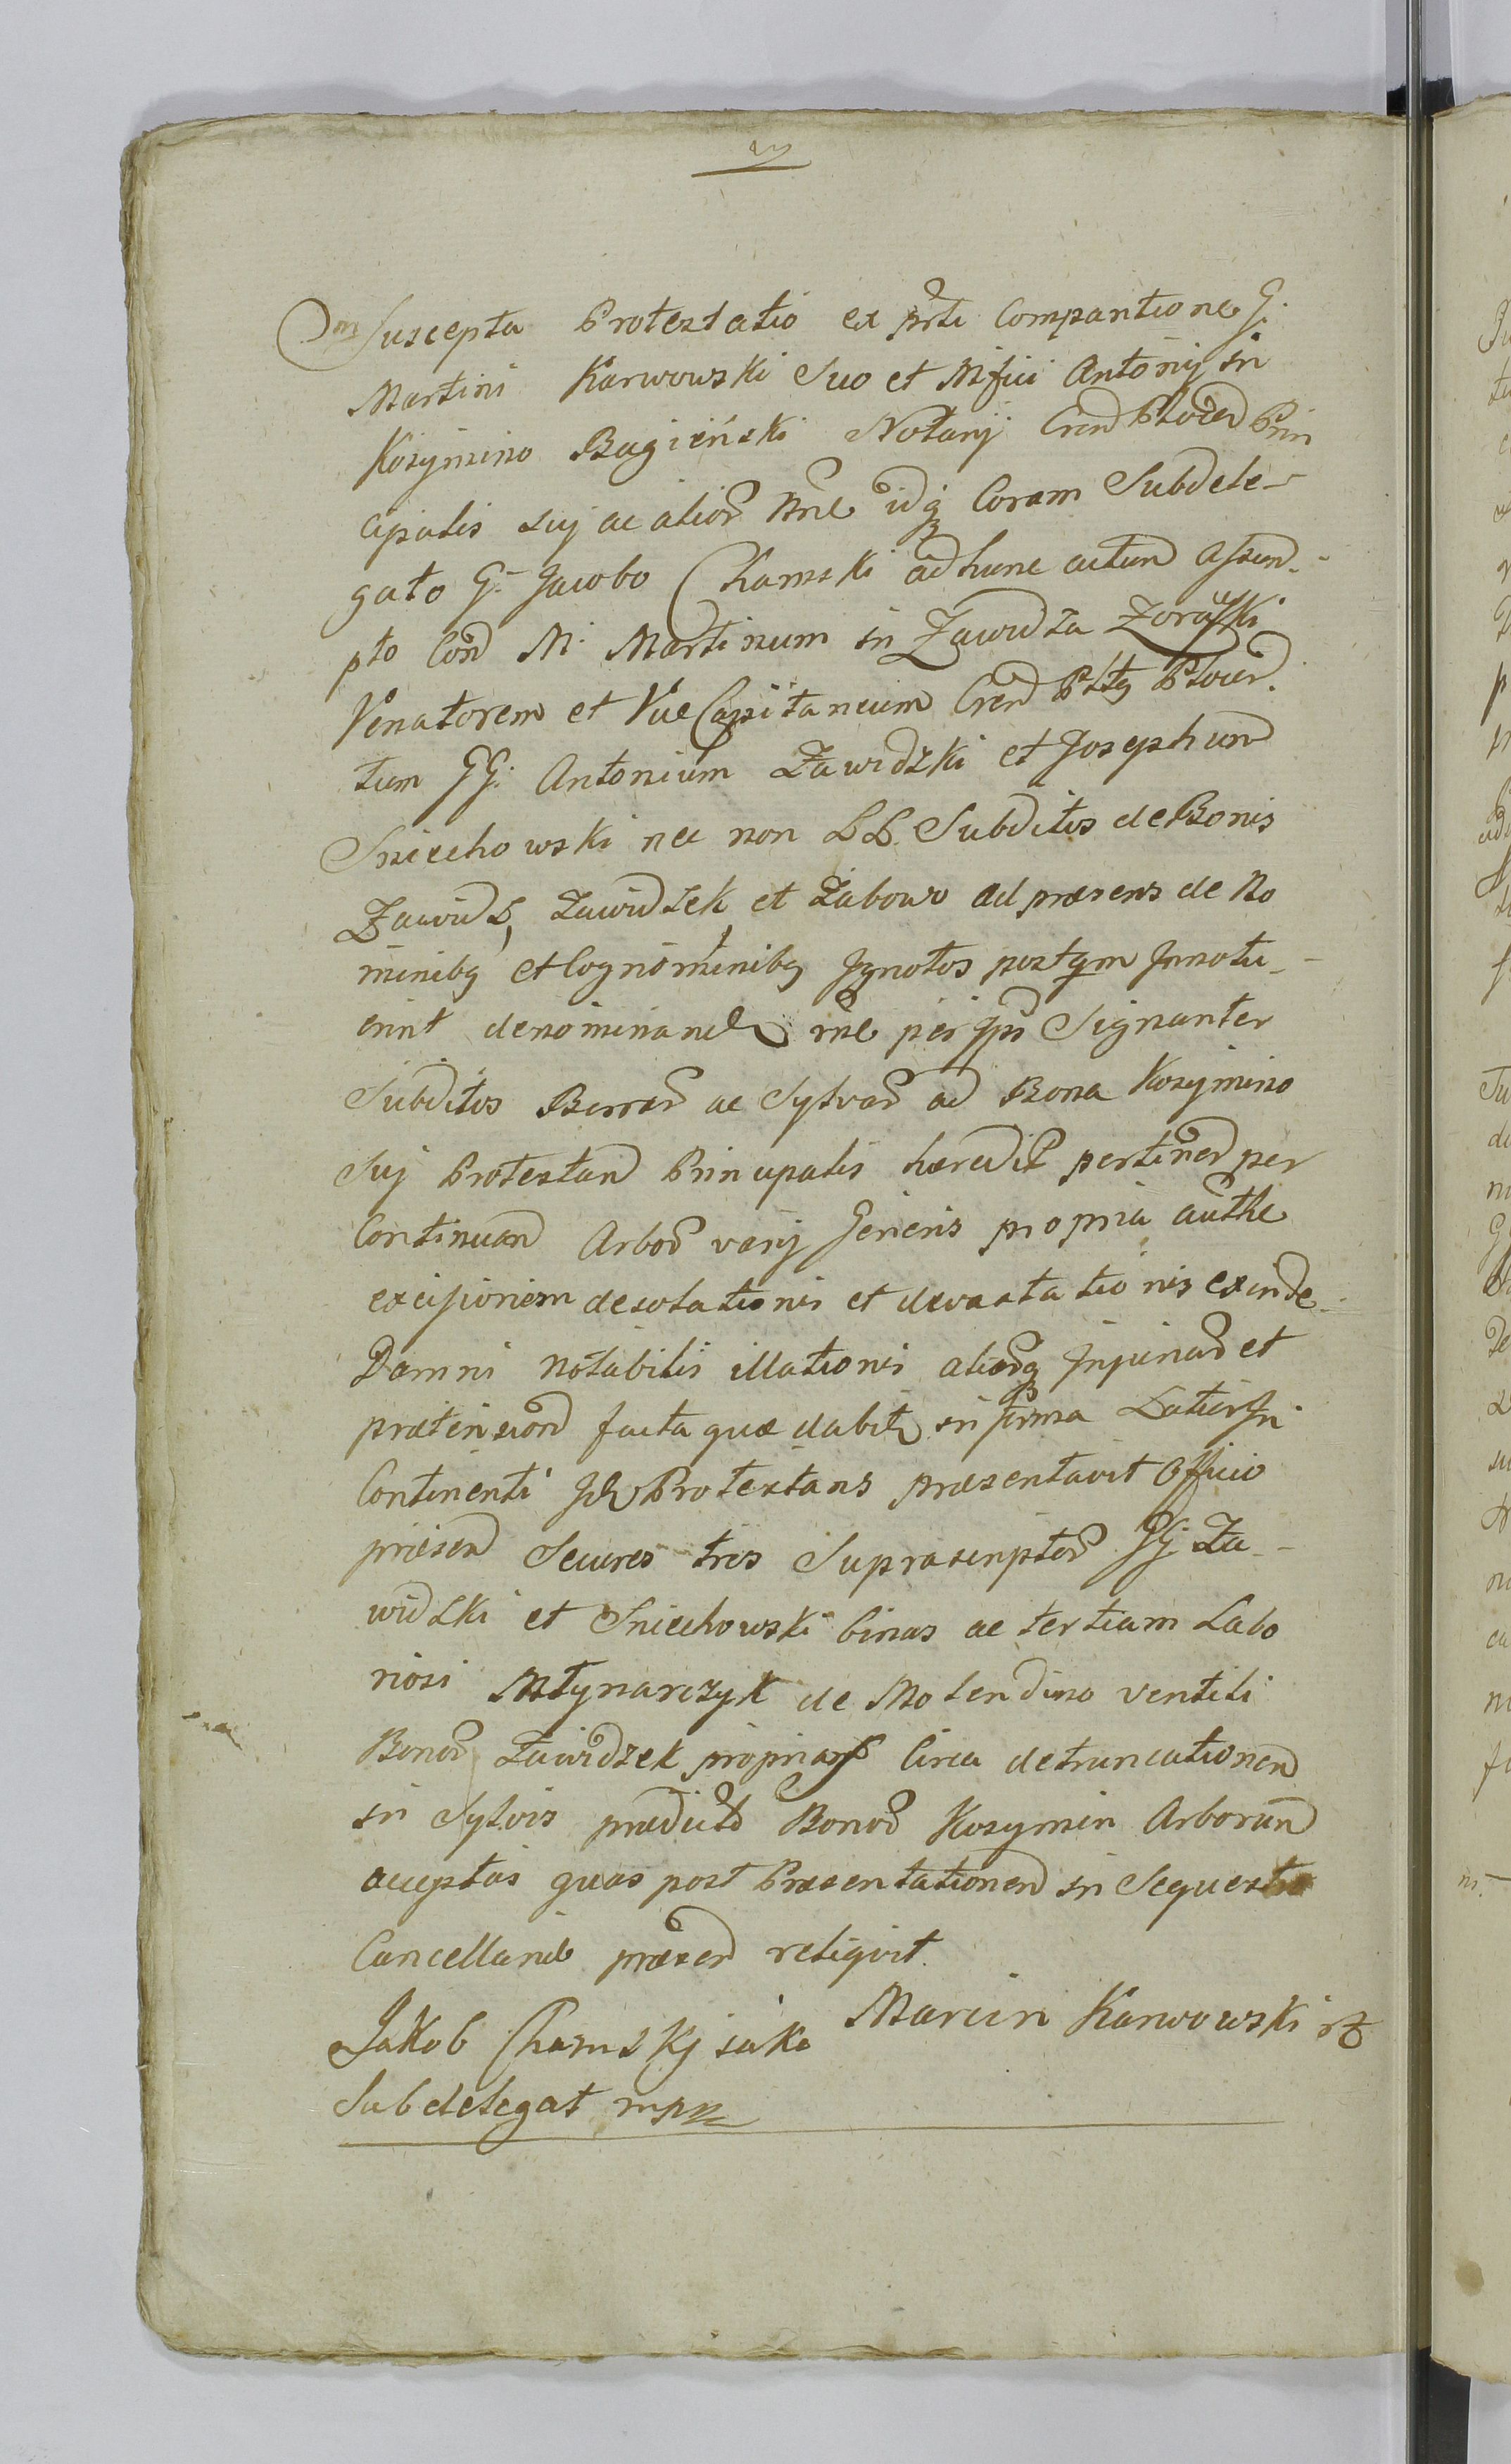 Suscepta Protestatio ex prti Compartione G.
Martini Karwowski Suo et Mfici Antonij in
Kozymino Bagieński Notarij Cren Plocen Prin
cipalis sui ac alior nne idq Coram Subdele-
gato G. Jacobo Chamski ad hunc actum assum-
pto Con M. Martinum in Zawidza Zorawski
Venatorem et Vice Capitaneum Cren Pltq Plocen.
tum GG. Antonium Zawidzki et Josephum
Sniechowski nec non LL. Subditos de Bonis
Zawidz, Zawidzek, et Żabowo ad præsens de No
minibq et Cognominibq Ignotos postqm Innotu-
erint denominand rne per Ipsos Signanter
Subditos Borrar ac Sylvar ad Bona Kozymino
Sui Protestan Principalis hæredit pertinen per
Continuam Arbor varij Generis propria authe
excisionem desolationis et devastationis exinde
Damni notabilis illationis aliorq Injuriar et
prætension facta quæ dabit in forma Latiori.
Continenti Id Protestans præsentavit Officio
præsen Secures tres Suprascriptor GG. Za-
widzki et Sniechowski binas ac tertiam Labo
riosi Młynarczyk de Molendino ventili
Bonor Zawidzek propriar Circa detruncationem
in Sylvis prædict Bonor Kozymin Arborum
acceptas quas post Præsentationem in Sequestro
Cancellariæ præsen reliqvit.
Marcin Karwowski
Jakob Chamskj jako
Subdelegat mpp